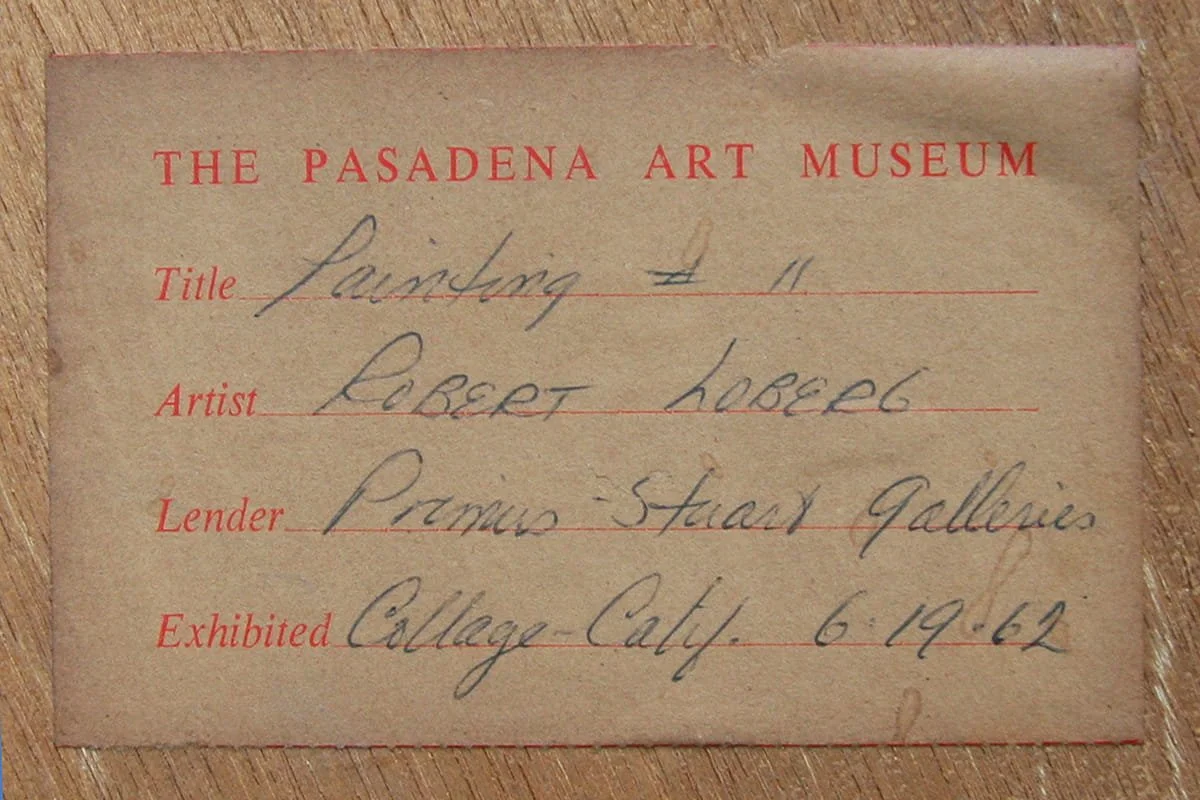 THE PASADENA ART MUSEUM
Title Painting # 11
Artist ROBERT LOBERG
Lender Primus-Stuart Galleries
Exhibited Collage-Calif. 6-19-62